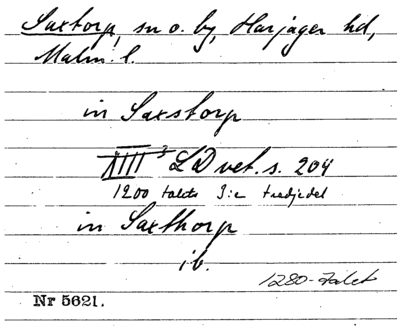 Saxtorp, sn o. by, Harjager hd,
Malm. l.
in Saxstorp
XIII 3 LD vet. s. 204
1200 talets 3:e tredjedel
in Saxthorp
ib.
1280-talet
Nr 5621.